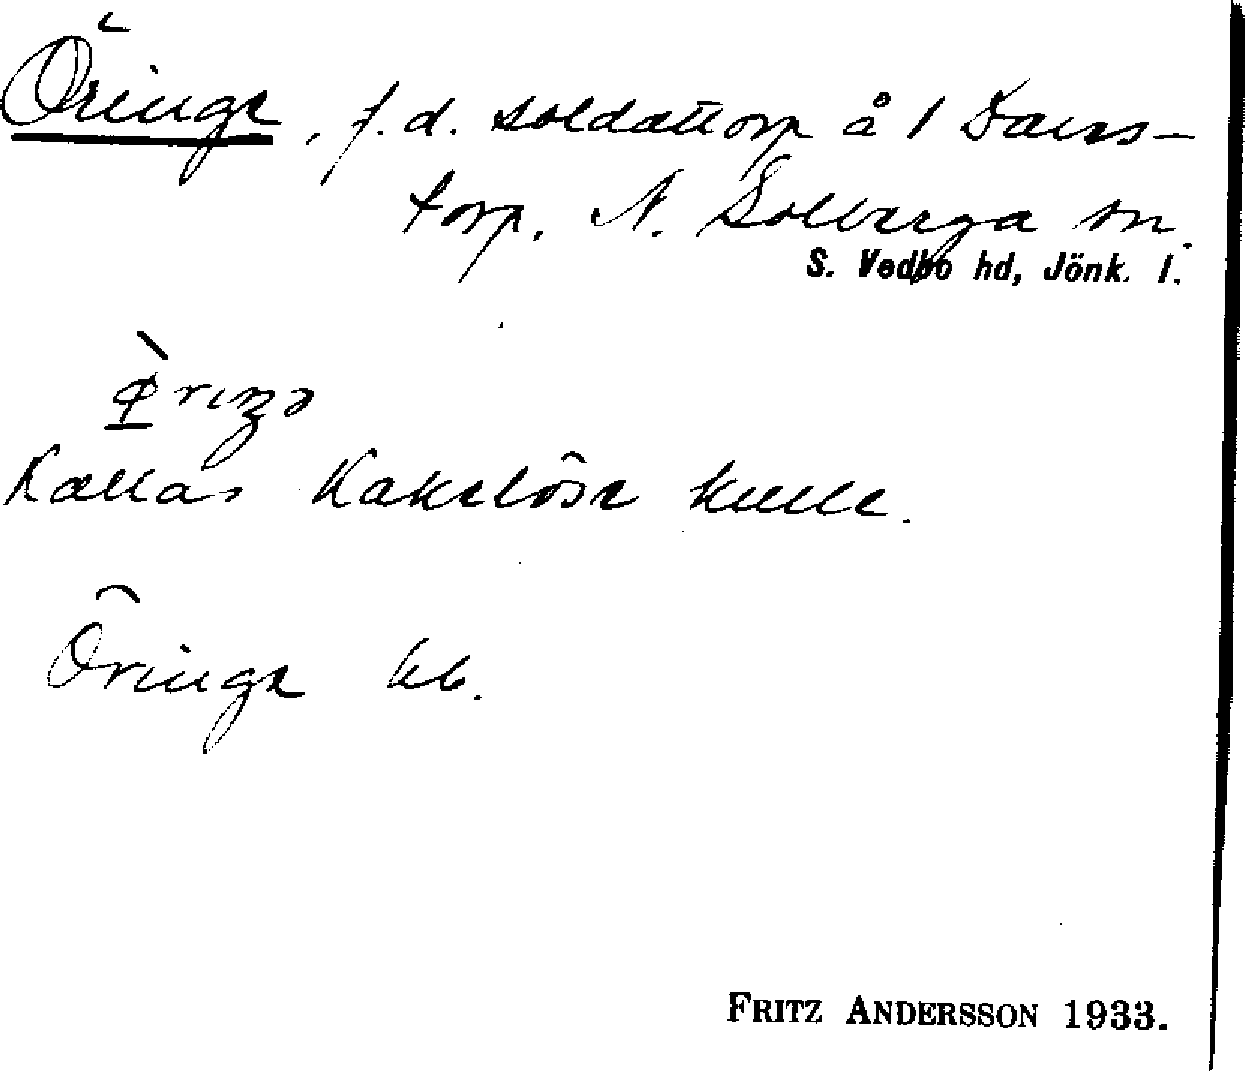 Öringe, f.d. soldattorp å 1 Dans-
torp. N. Solberga sn.
S. Vedbo hd, Jönk. l.
Kallas Kakelösa kulle.
Öringe kb.
FRITZ ANDERSSON 1933.